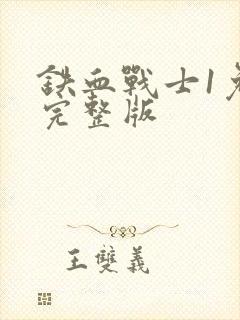 鉄血戰士1免
完整版
王雙義